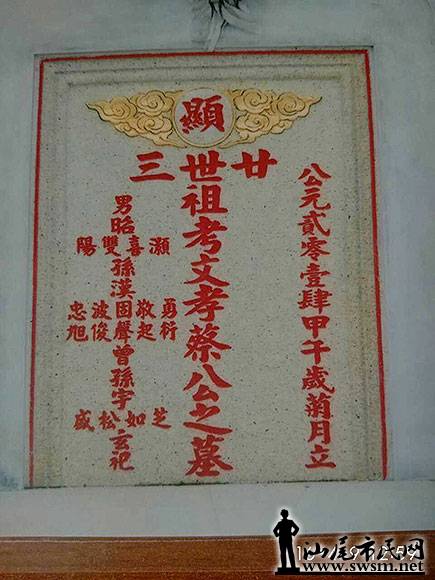 公元貳零壹肆甲午歲菊月立
顯
廿三世祖考文孝蔡公之墓
男昭
灝喜雙陽
孫漢
勇敬固波忠
衍起聲俊旭
曾孫宇
芝如松盛
玄祀
汕尾市民网
www.swsm.net